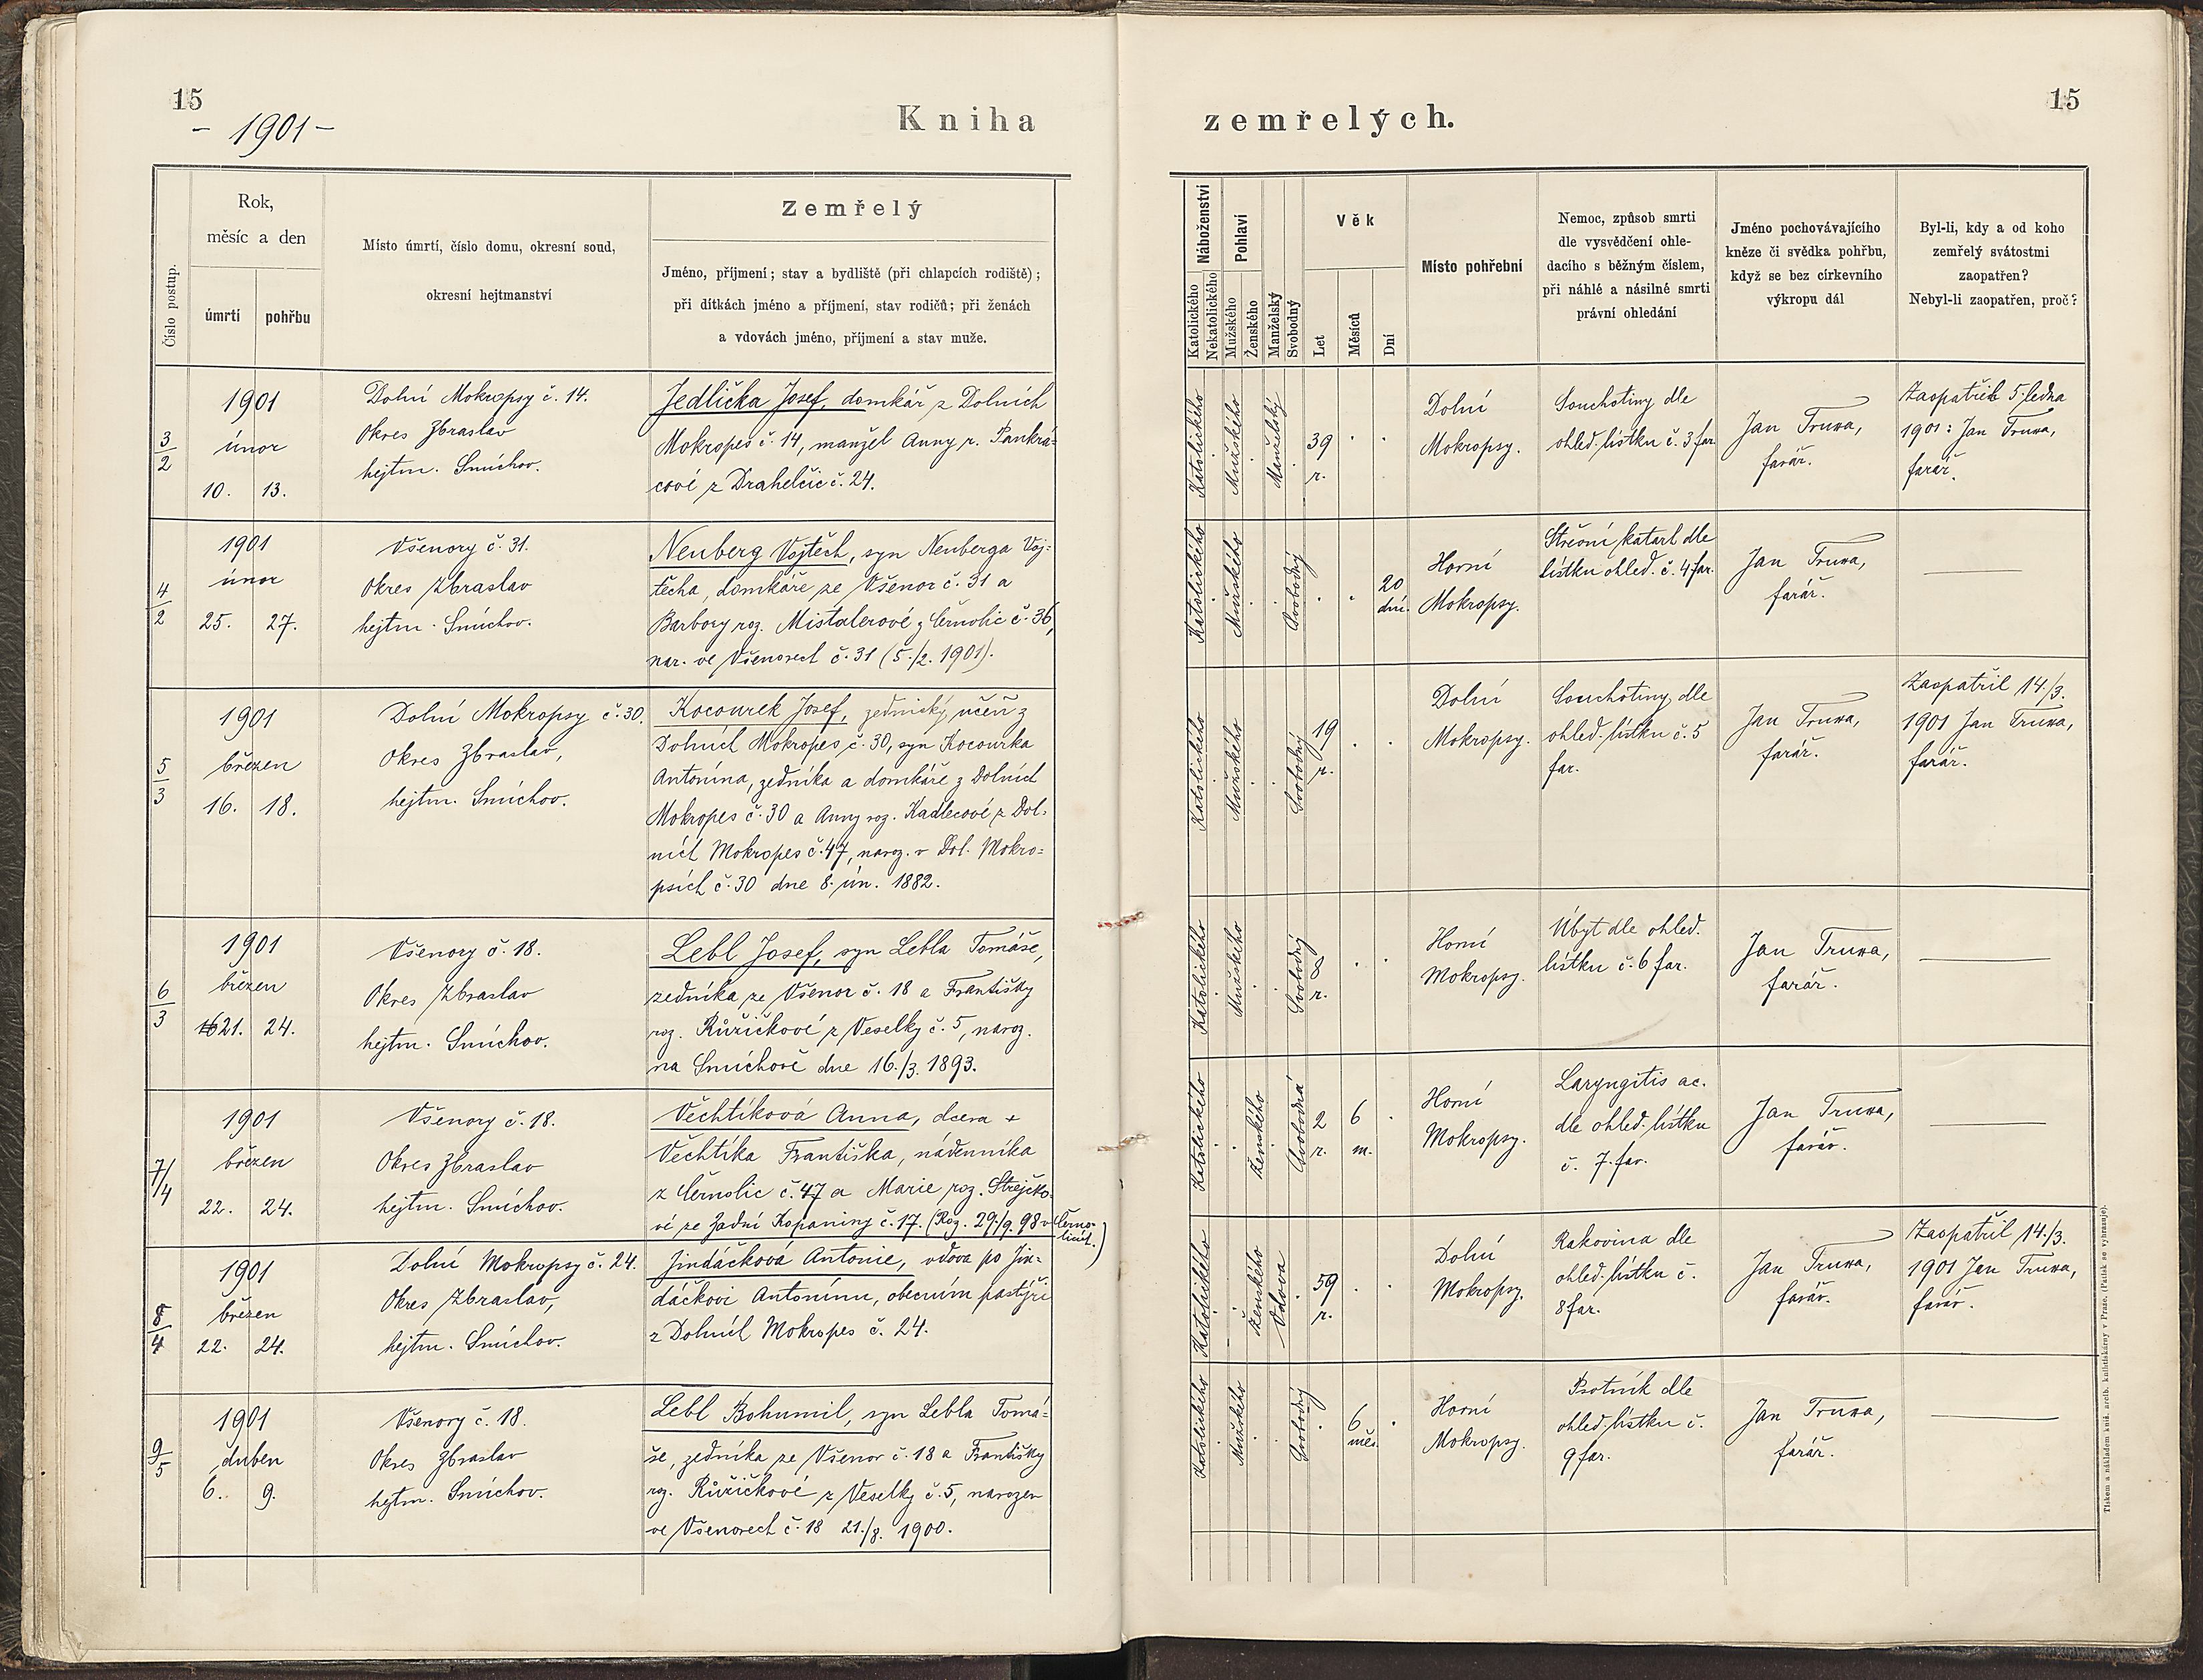 15
- 1901 -
Kniha
zemřelých.
15
Číslo postup.
Rok,
měsíc a den
úmrtí
pohřbu
Místo úmrtí, číslo domu, okresní soud,
okresní hejtmanství
Zemřelý
Jméno, příjmení; stav a bydliště (při chlapcích rodiště);
při dítkách jméno a příjmení, stav rodičů; při ženách
a vdovách jméno, příjmení a stav muže.
Náboženství
Katolického
Nekatolického
Pohlaví
Mužského
Ženského
Manželský
Svobodný
Věk
Let
Měsíců
Dní
Místo pohřební
Nemoc, způsob smrti
dle vysvědčení ohle-
dacího s běžným číslem,
při náhlé a násilné smrti
právní ohledání
Jméno pochovávajícího
kněze či svědka pohřbu,
když se bez církevního
výkropu dál
Byl-li, kdy a od koho
zemřelý svátostmi
zaopatřen?
Nebyl-li zaopatřen, proč?
3/2
1901
únor
10. 13.
Dolní Mokropsy č. 14.
Okres Zbraslav
hejtm. Smíchov.
Jedlička Josef, domkář z Dolních
Mokropes č. 14, manžel Anny r. Pankrá-
cové z Drahelčic č. 24.
Katolického
Mužského
Manželský
39
r.
Dolní
Mokropsy.
Souchotiny dle
ohled. lístku č. 3 far.
Jan Truxa,
farář.
Zaopatřil 5. ledna
1901: Jan Truxa,
farář.
4/2
1901
únor
25. 27.
Všenory č. 31.
Okres Zbraslav
hejtm. Smíchov.
Neuberg Vojtěch, syn Neuberga Voj-
těcha, domkáře ze Všenor č. 31 a
Barbory roz. Mistalerové z Černolic č. 36,
nar. ve Všenorech č. 31 (5./2. 1901).
Katolického
Mužského
Svobodný
20
dní.
Horní
Mokropsy.
Střevní katarh dle
lístku ohled. č. 4 far.
Jan Truxa,
farář.
5/3
1901
březen
16. 18.
Dolní Mokropsy č. 30.
Okres Zbraslav,
hejtm. Smíchov.
Kocourek Josef, zednický učeň z
Dolních Mokropes č. 30, syn Kocourka
Antonína, zedníka a domkáře z Dolních
Mokropes č. 30 a Anny roz. Kadlecové z Dol-
ních Mokropes č. 47, naroz. v Dol. Mokro-
psích č. 30 dne 8. ún. 1882.
Katolického
Mužského
Svobodný
19
r.
Dolní
Mokropsy.
Souchotiny dle
ohled. lístku č. 5
far.
Jan Truxa,
farář.
Zaopatřil 14./3.
1901 Jan Truxa,
farář.
6/3
1901
březen
21. 24.
Všenory č. 18.
Okres Zbraslav
hejtm. Smíchov.
Lebl Josef, syn Lebla Tomáše,
zedníka ze Všenor č. 18 a Františky
roz. Růžičkové z Veselky č. 5, naroz.
na Smíchově dne 16./3. 1893.
Katolického
Mužského
Svobodný
8
r.
Horní
Mokropsy.
Úbyt dle ohled.
lístku č. 6 far.
Jan Truxa,
farář.
7/4
1901
březen
22. 24.
Všenory č. 18.
Okres Zbraslav
hejtm. Smíchov.
Věchtíková Anna, dcera +
Věchtíka Františka, nádenníka
z Černolic č. 47 a Marie roz. Strejcko-
vé ze Zadní Kopaniny č. 17. (Roz. 29./9. 98 v Černo-
licích.)
Katolického
Ženského
Svobodná
2
r.
6
m.
Horní
Mokropsy.
Laryngitis ac.
dle ohled. lístku
č. 7. far.
Jan Truxa,
farář.
8/4
1901
březen
22. 24.
Dolní Mokropsy č. 24.
Okres Zbraslav,
hejtm. Smíchov.
Jindáčková Antonie, vdova po Jin-
dáčkovi Antonínu, obecním pastýři
z Dolních Mokropes č. 24.
Katolického
Ženského
Vdova
59
r.
Dolní
Mokropsy.
Rakovina dle
ohled. lístku č.
8 far.
Jan Truxa,
farář.
Zaopatřil 14./3.
1901 Jan Truxa,
farář.
9/5
1901
duben
6. 9.
Všenory č. 18.
Okres Zbraslav
hejtm. Smíchov.
Lebl Bohumil, syn Lebla Tomá-
še, zedníka ze Všenor č. 18 a Františky
roz. Růžičkové z Veselky č. 5, narozen
ve Všenorech č. 18 21./8. 1900.
Katolického
Mužského
Svobodný
6
měs.
Horní
Mokropsy.
Psotník dle
ohled. lístku č.
9 far.
Jan Truxa,
farář.
Tiskem a nákladem kníž. arcib. knihtiskárny v Praze. (Patisk se vyhrazuje).